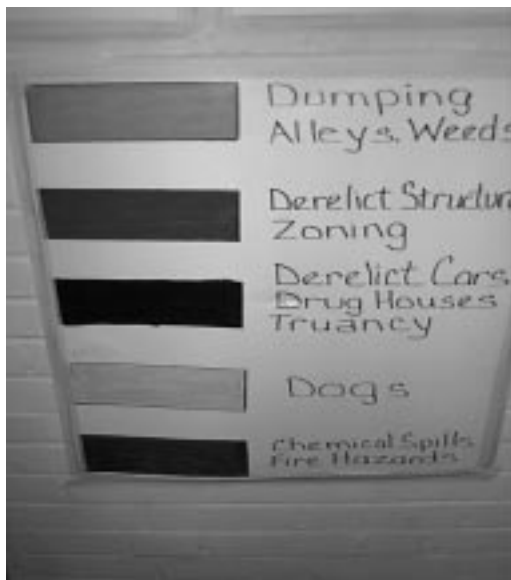 Dumping
Alleys, Weeds
Derelict Structur
Zoning
Derelict Cars
Drug Houses
Truancy
Dogs
Chemical Spills
Fire Hazards